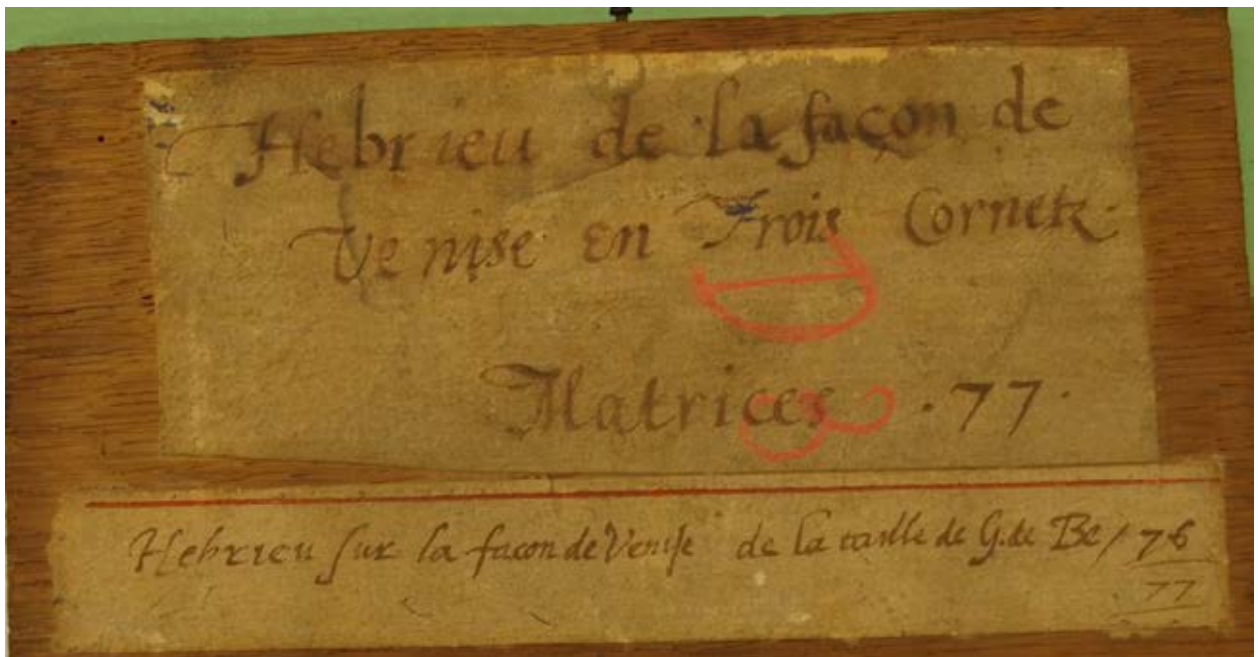 Hebrieu de la façon de
Venise en Trois Cornetz.
Matrices .77.
Hebrieu sur la facon de Venise de la taille de G. de Be / 76
77